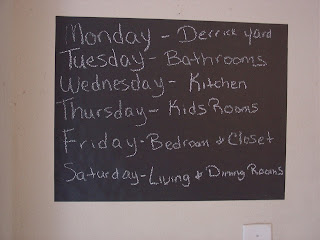 Monday - Derrick yard
Tuesday - Bathrooms
Wednesday - Kitchen
Thursday - Kids Rooms
Friday - Bedroom & Closet
Saturday - Living & Dining Rooms